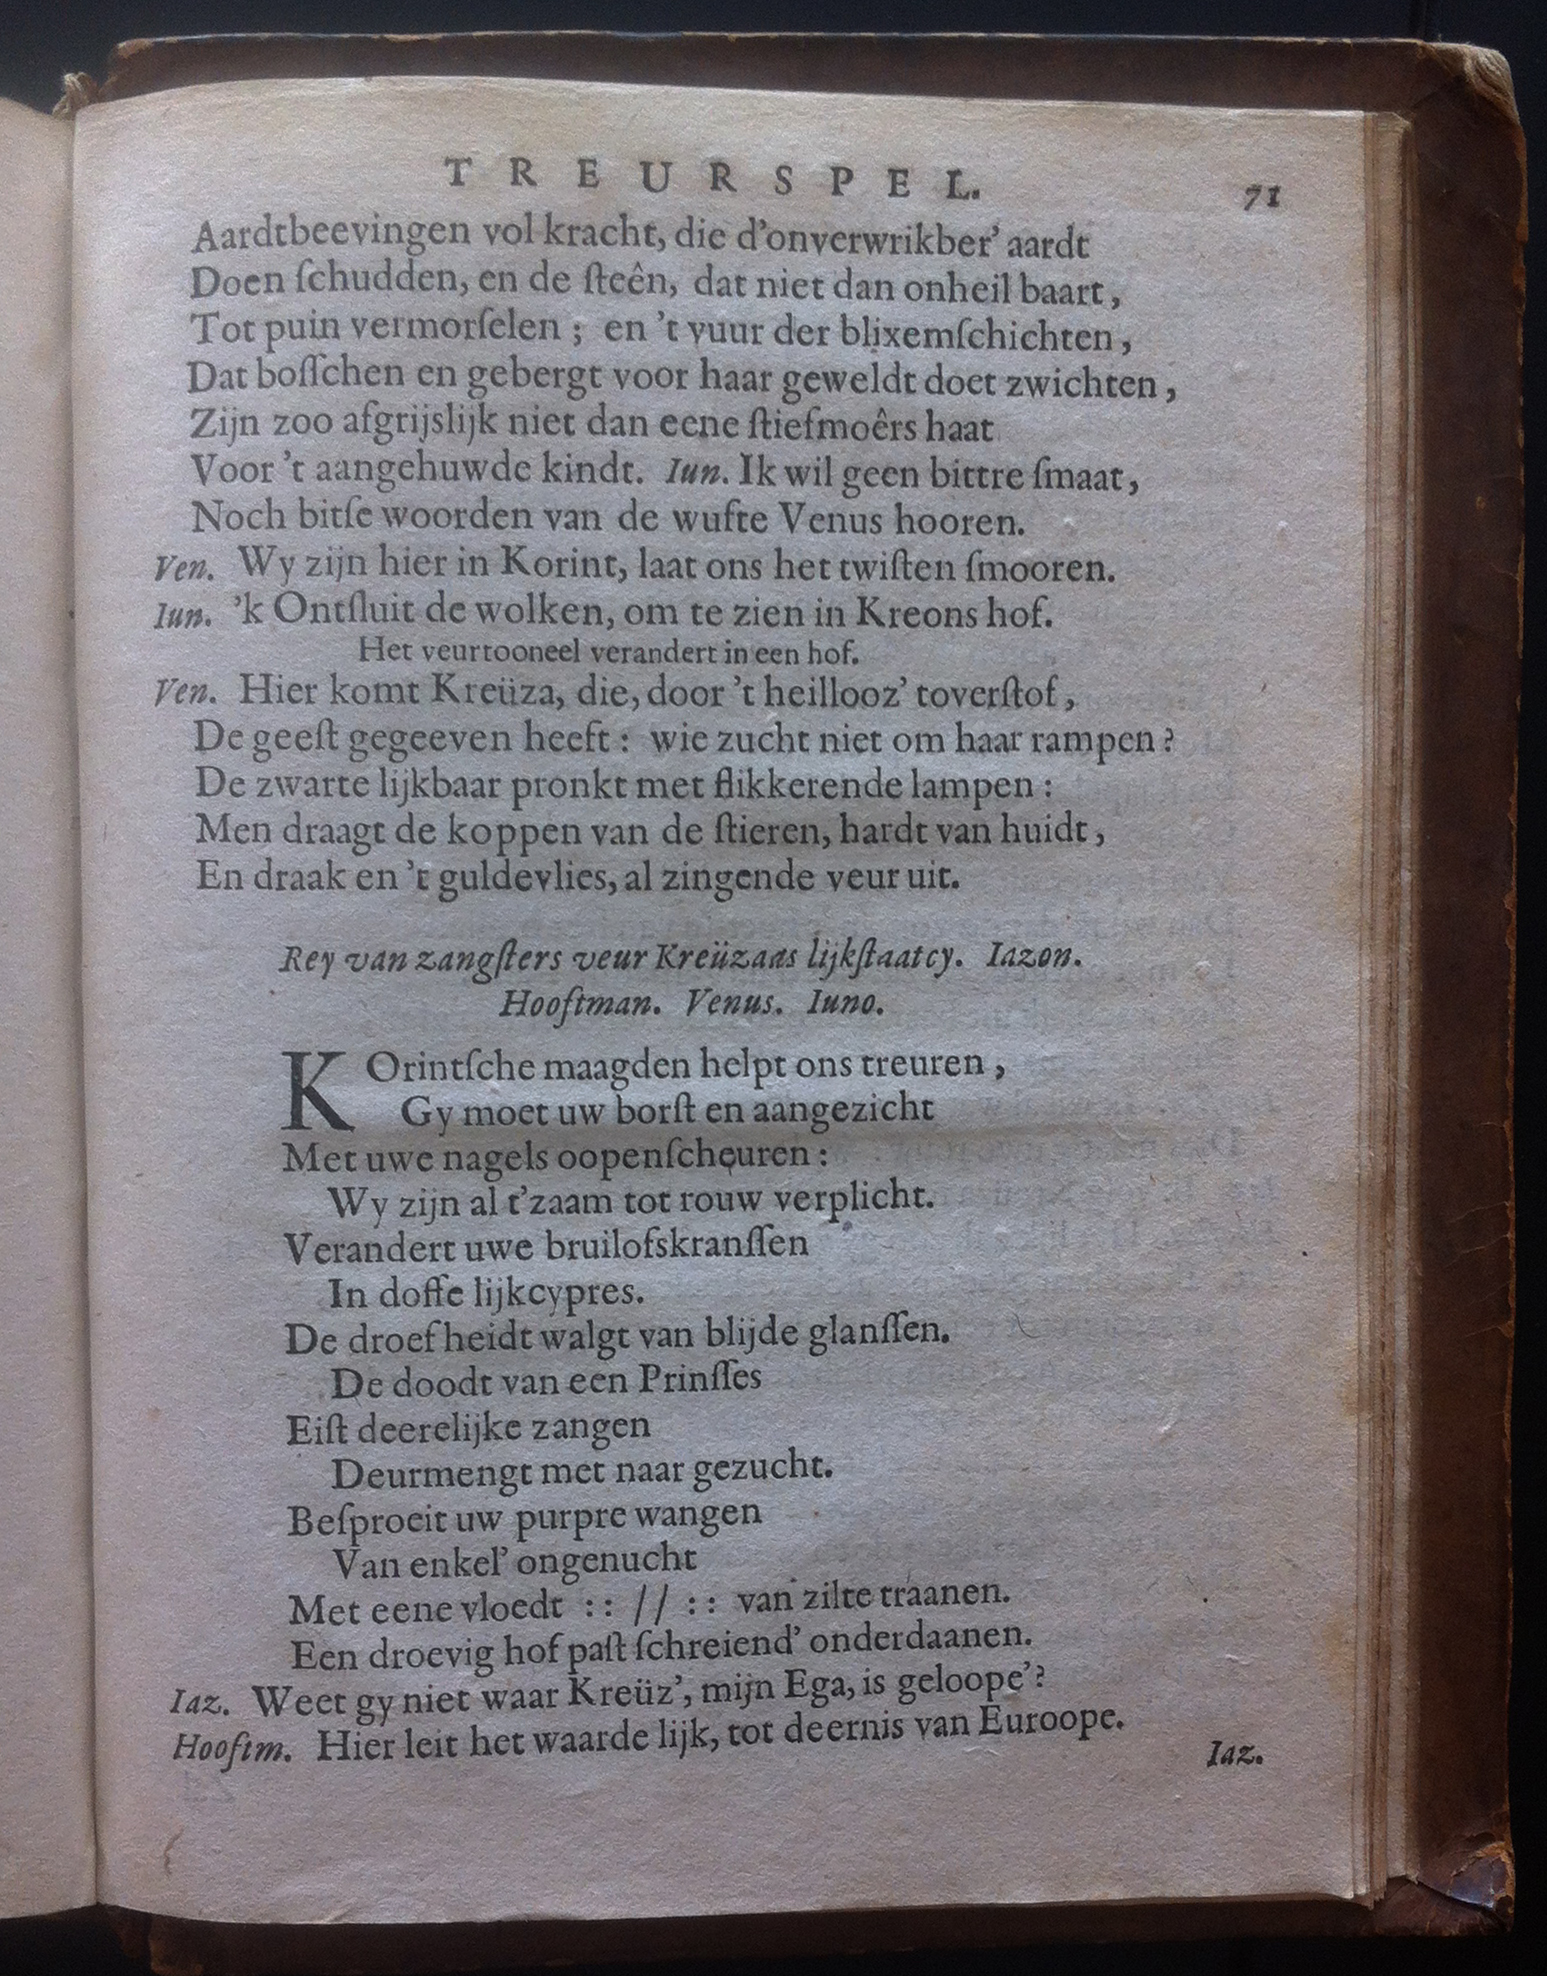 TREURSPEL. 71
Aardtbeevingen vol kracht, die d'onverwrikber' aardt
Doen ſchudden, en de ſteên, dat niet dan onheil baart,
Tot puin vermorſelen; en 't vuur der blixemſchichten,
Dat boſſchen en gebergt voor haar geweldt doet zwichten,
Zijn zoo afgrijslijk niet dan eene ſtiefmoêrs haat
Voor 't aangehuwde kindt. Iun. Ik wil geen bittre ſmaat,
Noch bitſe woorden van de wufte Venus hooren.
Ven. Wy zijn hier in Korint, laat ons het twiſten ſmooren.
Iun. 'k Ontſluit de wolken, om te zien in Kreons hof.
Het veurtooneel verandert in een hof.
Ven. Hier komt Kreüza, die, door 't heillooz' toverſtof,
De geeſt gegeeven heeft: wie zucht niet om haar rampen?
De zwarte lijkbaar pronkt met flikkerende lampen:
Men draagt de koppen van de ſtieren, hardt van huidt,
En draak en 't guldevlies, al zingende veur uit.
Rey van zangſters veur Kreüzaas lijkſtaatcy. Iazon.
Hooftman. Venus. Iuno.
KOrintſche maagden helpt ons treuren,
Gy moet uw borſt en aangezicht
Met uwe nagels oopenſcheuren:
Wy zijn al t'zaam tot rouw verplicht.
Verandert uwe bruilofskranſſen
In doffe lijkcypres.
De droefheidt walgt van blijde glanſſen.
De doodt van een Prinſſes
Eiſt deerelijke zangen
Deurmengt met naar gezucht.
Beſproeit uw purpre wangen
Van enkel' ongenucht
Met eene vloedt :: // :: van zilte traanen.
Een droevig hof paſt ſchreiend' onderdaanen.
Iaz. Weet gy niet waar Kreüz', mijn Ega, is geloope'?
Hooftm. Hier leit het waarde lijk, tot deernis van Euroope.
Iaz.